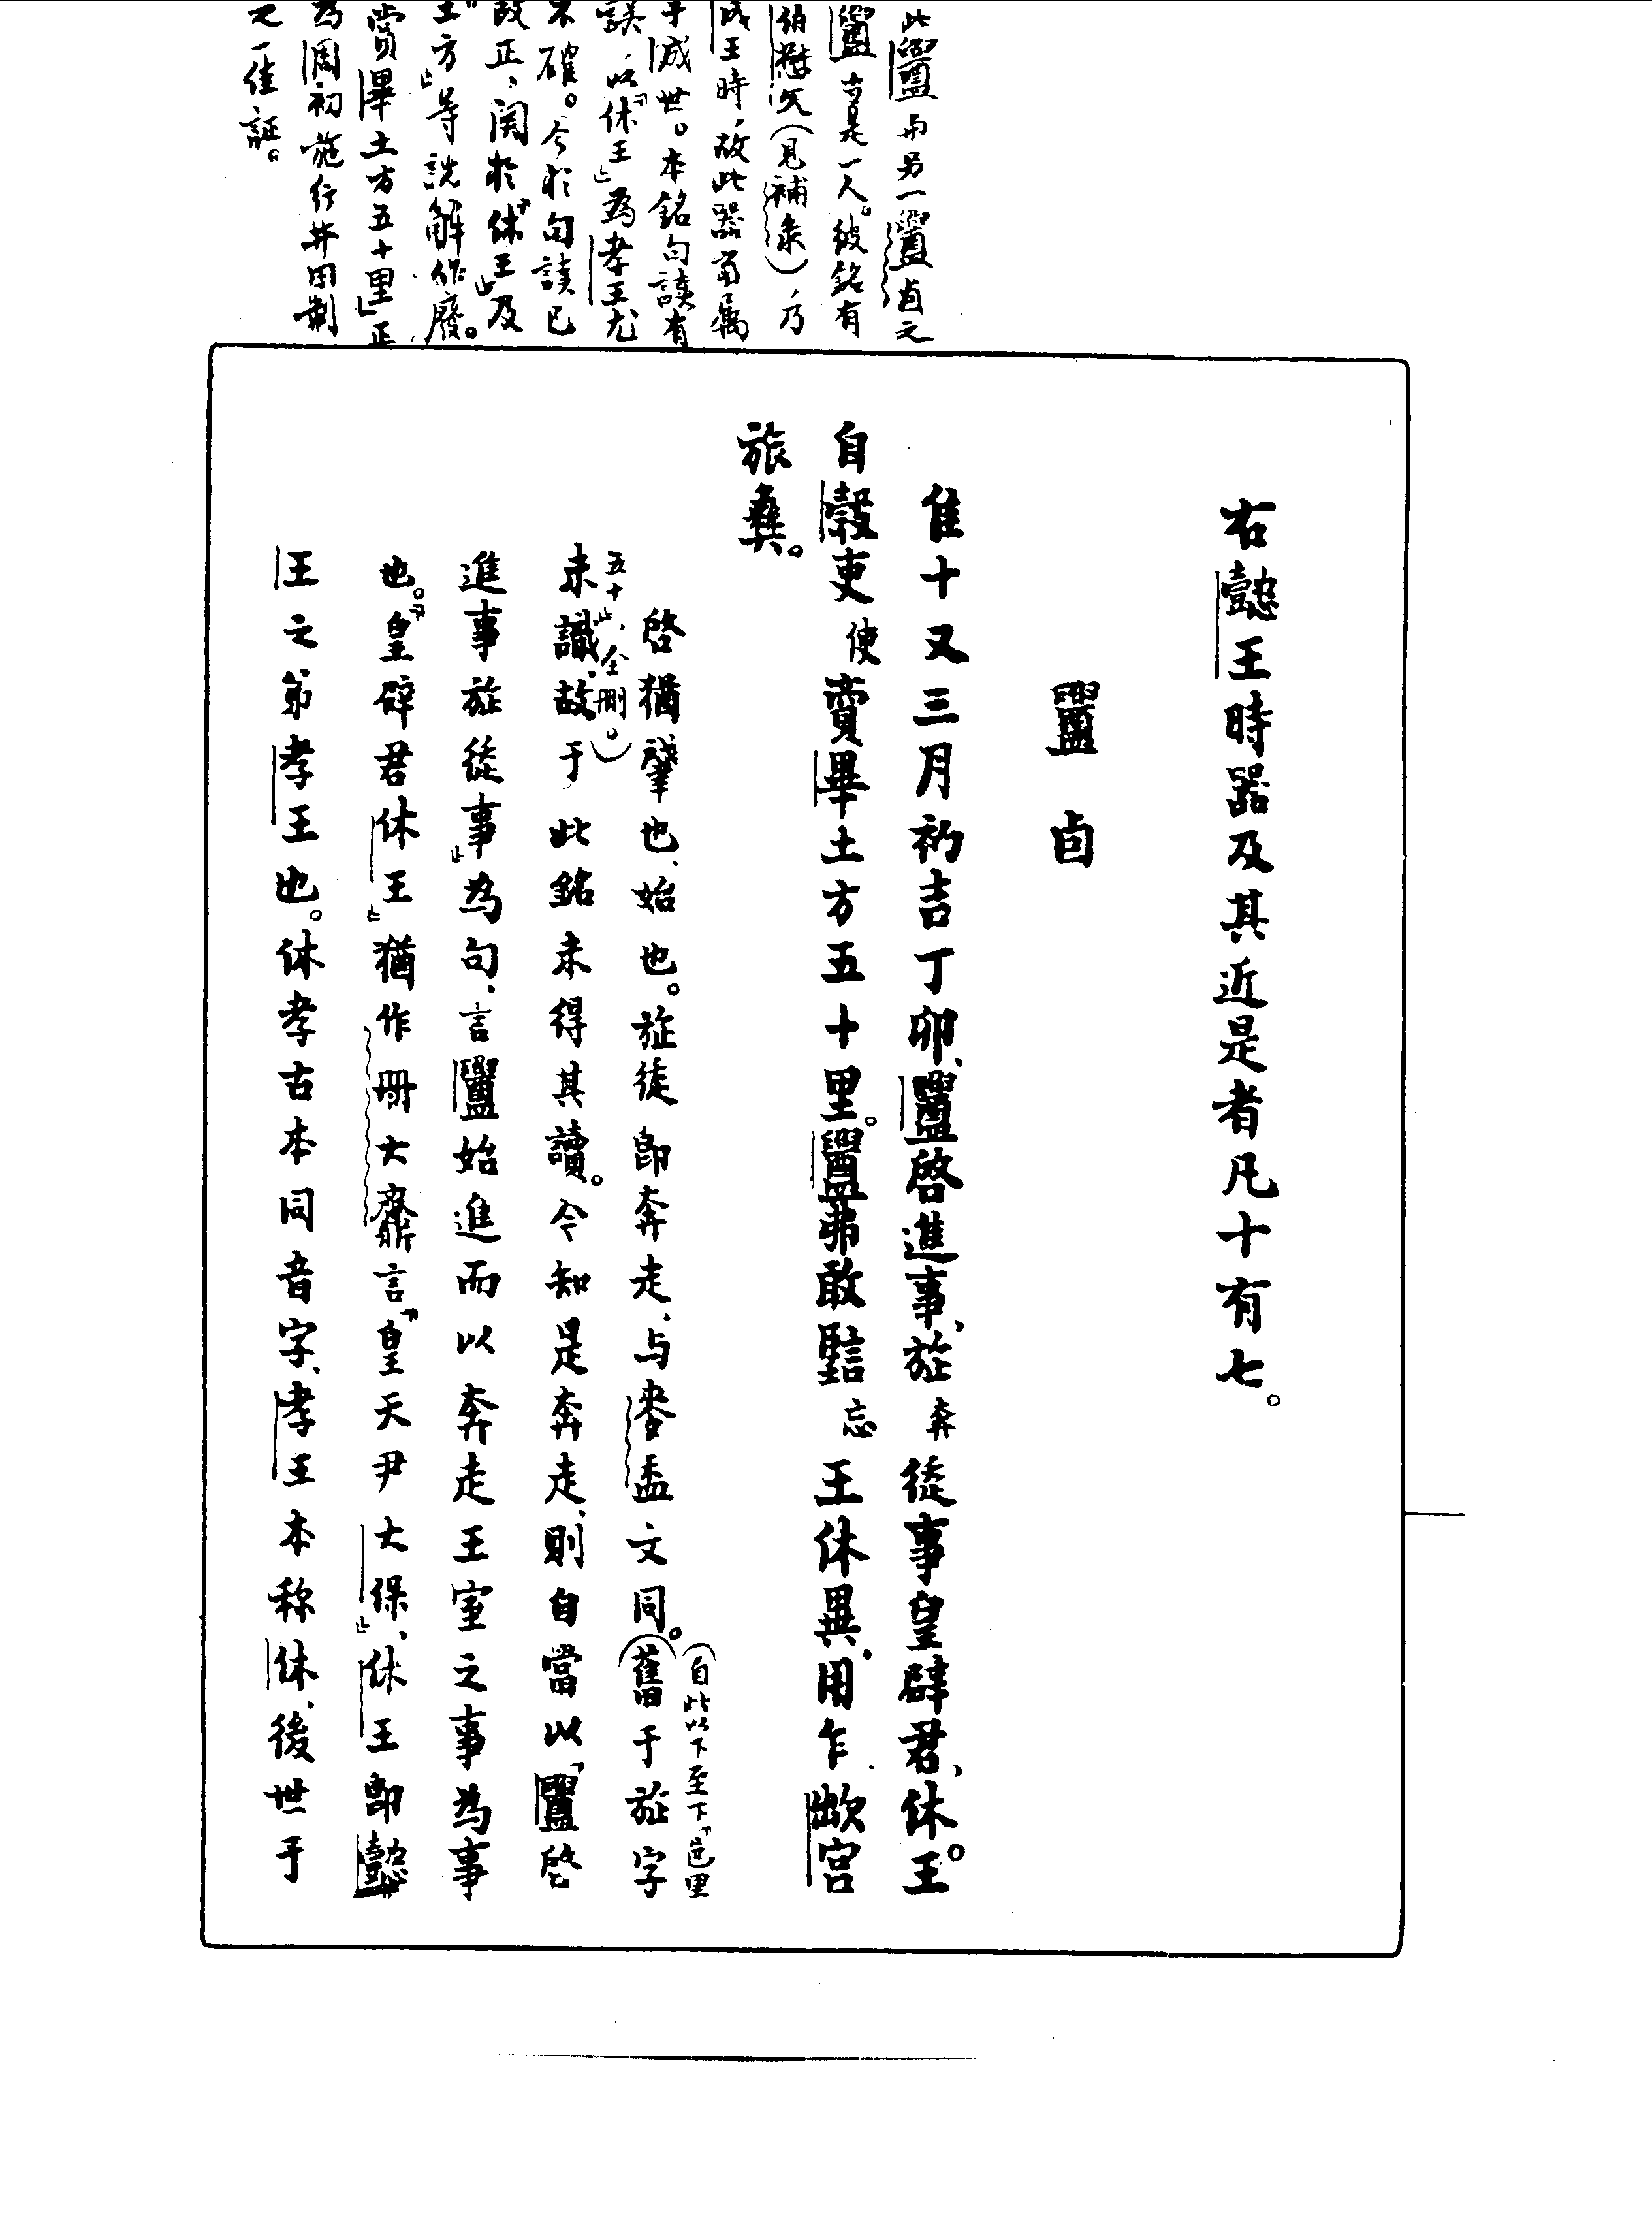 此𥃝卣与另一𥃝卣之
𥃝當是一人。彼銘有
伯懋父(見補彔)，乃
成王時，故此器當属
于成世。本銘句讀有
誤，以「休王」為孝王尤
不確。今於句讀已
改正，関於「休王」及
「土方」等説解作廢。
「賞畢土方五十里」正
為周初施行井田制
之一佳証。
右懿王時器及其近是者凡十有七。
卣
隹十又三月初吉丁卯、啓進事、旋奔徒事皇辟君、休。王
自穀吏使賣畢土方五十里。弗敢諲忘王休異、用乍欪宫
旅彝。
啓猶肇也、始也。旋徒即奔走、与麥盉文同。(舊于旋字
(自此以下至下「邑里
五十」止、全刪。)
未識、故于此銘未得其讀。今知是奔走、則自當以「啓
進事旋徒事」為句、言始進而以奔走王室之事為事
也。「皇辟君休王」猶作冊大鼒言「皇天尹大保」、休王即懿
王之弟孝王也。休孝古本同音字、孝王本称休、後世于